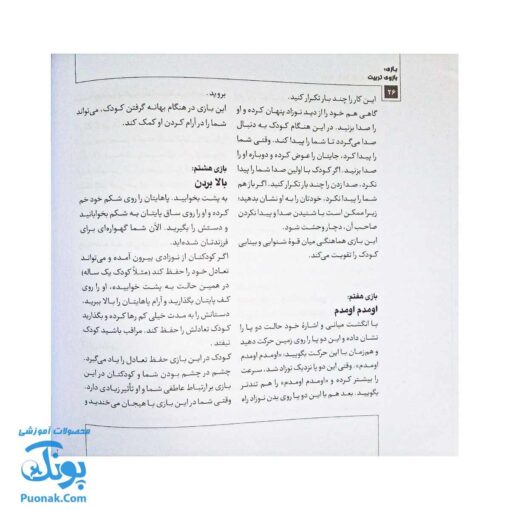 بازی؛
بازوی تربیت
۲۶
این کار را چند بار تکرار کنید.
گاهی هم خود را از دید نوزاد پنهان کرده و او
را صدا بزنید. در این هنگام کودک به دنبال
صدا می‌گردد تا شما را پیدا کند. وقتی شما
را پیدا کرد، جایتان را عوض کرده و دوباره او را
صدا بزنید. اگر کودک با اولین صدا شما را پیدا
نکرد، صدا زدن را چند بار تکرار کنید. اگر باز هم
شما را پیدا نکرد، خودتان را به او نشان بدهید؛
زیرا ممکن است با شنیدن صدا و پیدا نکردن
صاحب آن، دچار وحشت شود.
این بازی هماهنگی میان قوهٔ شنوایی و بینایی
کودک را تقویت می‌کند.
بازی هفتم:
اومدم اومدم
با انگشت میانی و اشارهٔ خود حالت دو پا را
نشان داده و این دو پا را روی زمین حرکت دهید
و هم‌زمان با این حرکت بگویید: «اومدم اومدم
اومدم». وقتی این دو پا نزدیک نوزاد شد، سرعت
را بیشتر کرده و «اومدم اومدم» را هم تندتر
بگویید. بعد هم با این دو پا روی بدن نوزاد راه
بروید.
این بازی در هنگام بهانه گرفتن کودک، می‌تواند
شما را در آرام کردن او کمک کند.
بازی هشتم:
بالا بردن
به پشت بخوابید. پاهایتان را روی شکم خود خم
کرده و او را روی ساق پایتان به شکم بخوابانید
و دستش را بگیرید. الآن شما گهواره‌ای برای
فرزندتان شده‌اید.
اگر کودکتان از نوزادی بیرون آمده و می‌تواند
تعادل خود را حفظ کند (مثلاً کودک یک ساله)
در همین حالت به پشت خوابیده، او را روی
کف پایتان بگذارید و آرام پاهایتان را بالا ببرید.
دستانش را به مدت خیلی کم رها کرده و بگذارید
کودک تعادلش را حفظ کند. مراقب باشید کودک
نیفتد.
کودک در این بازی حفظ تعادل را یاد می‌گیرد.
چشم در چشم بودن شما و کودکتان در این
بازی بر ارتباط عاطفی شما و او تأثیر زیادی دارد.
وقتی شما در این بازی با هیجان می‌خندید و
محصولات آموزشی
پونک
Puonak.Com